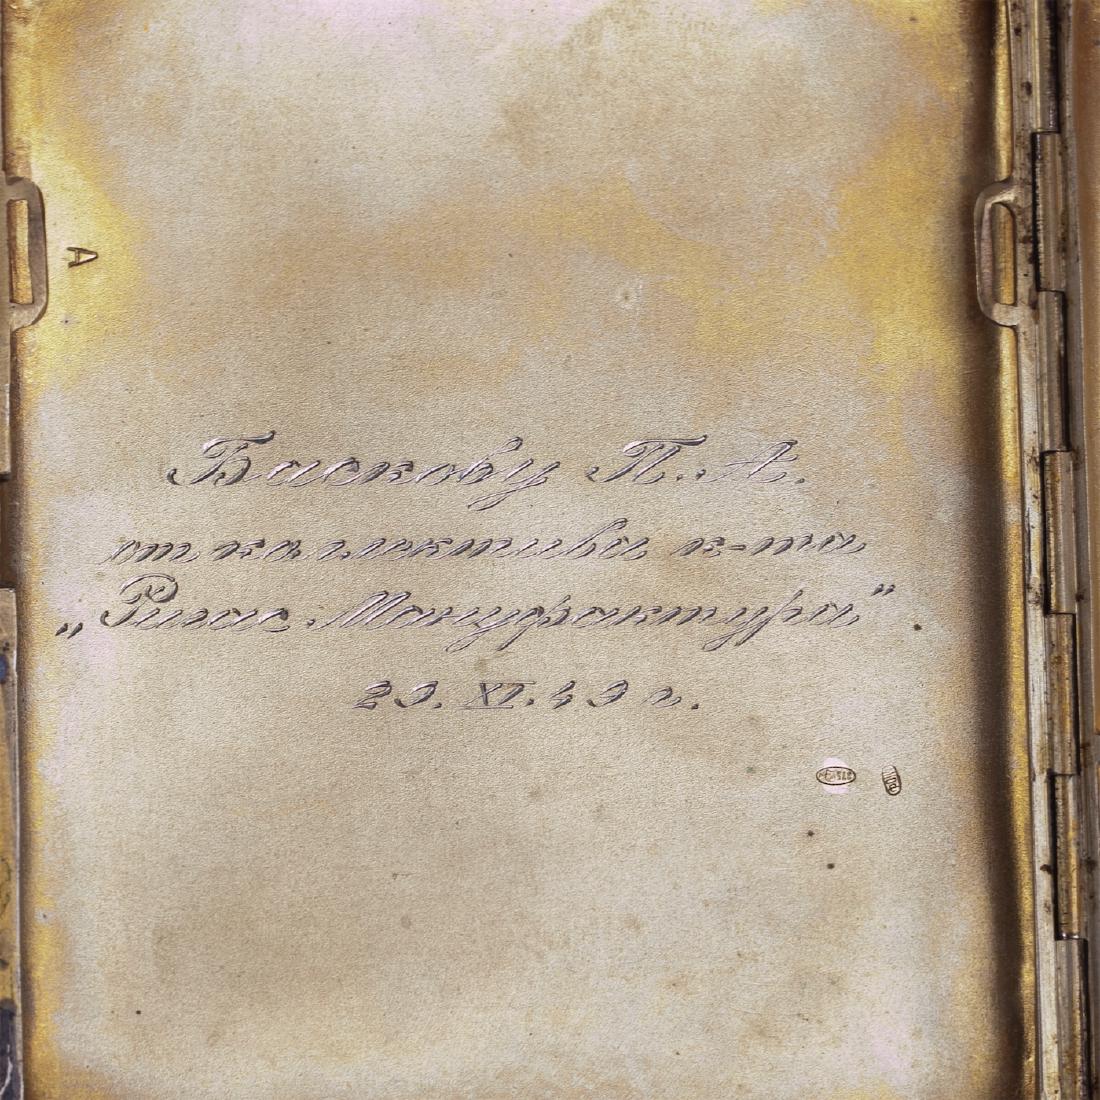 Баскову П. А.
от коллектива к-та
„Ригас Мануфактура”
23. XI. 49 г.
А